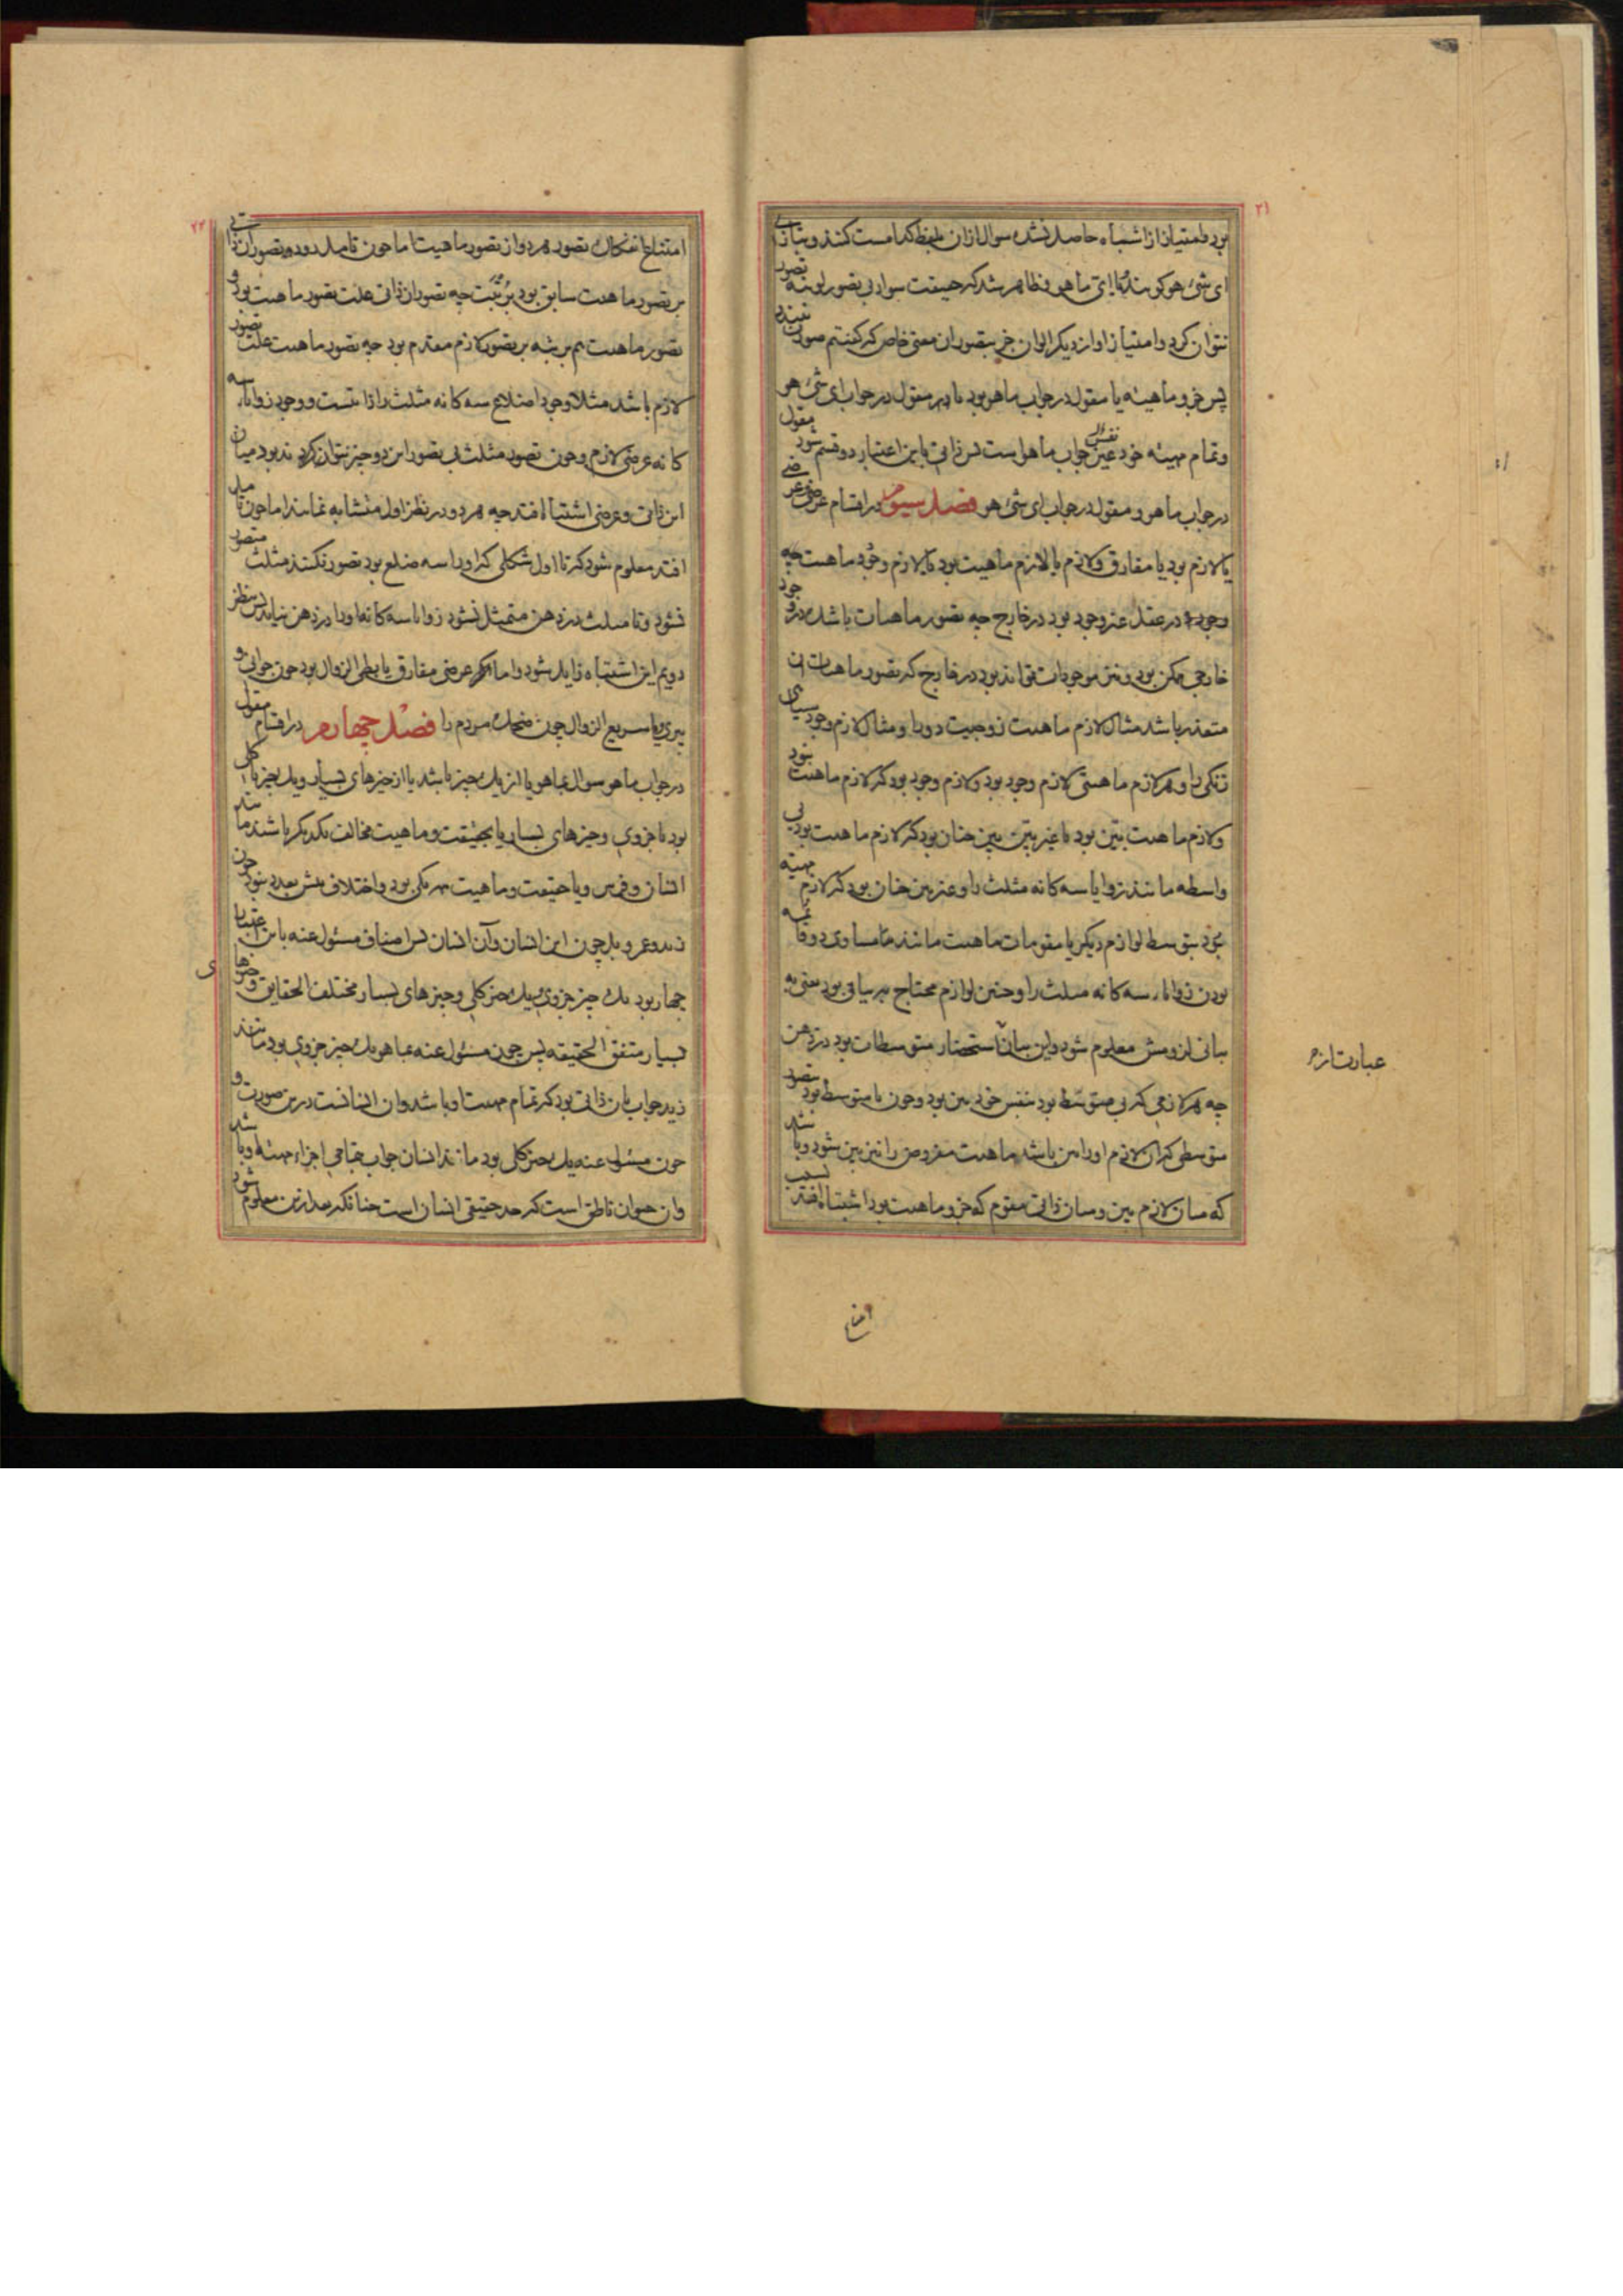 ۲۱
بود و امتیاز از اشباه حاصل نشده سوال ازان بلفظ کدامست کنند و بتازی
ای شیء هو کویند و یا ای ما هو و ظاهر شد که حقیقت سواد بی تصور لونیه تصور
نتوان کرد و امتیاز او از دیکر الوان جز بتصور ان معنی خاص که کفتیم صورت نبندد
پس جزو ماهیة یا مقول در جواب ماهو بود یا مقول در جواب ای شیء هو
و تمام مهیته خود نفس جواب ما هو است پس ذاتی باین اعتبار دو قسم شود مقول
در جواب ماهو و مقول در جواب ای شیء هو فصل سیوم در اقسام عرضی عرضی
یا لازم بود یا مفارق و لازم یا لازم ماهیت بود یا لازم وجود ماهیت چه
وجود در عقل غیر وجود بود در خارج چه تصور ماهیات باشد که در وجود
خارجی ممکن بود و نیز موجودات تواند بود در خارج که تصور ماهیات ان
متعذر باشد مثال لازم ماهیت زوجیت دو را و مثال لازم وجود سیاهی
زنکی را و هر لازم ماهیتی لازم وجود بود و لازم وجود بود که لازم ماهیت نبود
و لازم ماهیت بین بود یا غیر بین بین چنان بود که لازم ماهیت بود بی
واسطه مانند زوایا سه کانه مثلث را و غیر بین چنان بود که لازم مهیته
بود بتوسط لوازم دیکر یا مقومات ماهیت مانند مساوی دو قائمه
بودن زوایاء سه کانه مثلث را و چنین لوازم محتاج به بیانی بود یعنی به
بیانی لزومش معلوم شود و این بیان استحضار متوسطات بود در ذهن
چه هر لازمی که بی متوسط بود بنفس خود بین بود و چون با متوسط بود تصور
متوسطی که ان لازم اورا بین باشد ماهیت مفروض را نیز بین شود و باشد
که میان لازم بین و میان ذاتی مقوم که جزو ماهیت بود اشتباه افتد بسبب
عبارت از
۲۲
امتناع انفکاک تصور هر دو از تصور ماهیت اما چون تامل رود تصور ان ذاتی
بر تصور ماهیت سابق بود برتبت چه تصور ان ذاتی علت تصور ماهیت بود و
تصور ماهیت هم برتبه بر تصور لازم مقدم بود چه تصور ماهیت علت تصور
لازم باشد مثلا وجود اضلاع سه کانه مثلث را ذاتیست و وجود زوایاء سه
کانه عرضی لازم و چون تصور مثلث بی تصور این دو چیز نتوان کرد بود میان
این ذاتی و عرضی اشتباه افتد چه هر دو در نظر اول متشابه نمایند اما چون تامل
افتد معلوم شود که تا اول شکلی که اورا سه ضلع بود تصور نکنند مثلث متصور
نشود و تا مثلث در ذهن متمثل نشود زوایا سه کانه اورا در ذهن نیاید پس بنظر
دویم این اشتباه زایل شود و اما عرضی مفارق یا بطی الزوال بود چون جوانی و
پیری و یا سریع الزوال چون ضحک مردم را فصل چهارم در اقسام مقول
در جواب ما هو سوال بما هو یا از یک چیز باشد یا از چیزهای بسیار و یک چیز یا کلی
بود یا جزوی و چیزهای بسیار یا بحقیقت و ماهیت مخالف یکدیکر باشند مانند
انسان و فرس و یا حقیقت و ماهیت هر یکی بود و اختلاف بیش بعدد نبود چون
زید و عمرو بل چون این انسان و آن انسان پس اصناف مسئول عنه باین اعتبار
چهار بود یک چیز جزوی و یک چیز کلی و چیزهای بسیار مختلف الحقایق و چیزهای
بسیار متفق الحقیقه پس چون مسئول عنه بما هو یک چیز جزوی بود مانند
زید جواب بان ذاتی بود که تمام مهیت او باشد و ان انسانست درین صورت و
چون مسئول عنه یک چیز کلی بود مانند انسان جواب بتمامی اجزاء مهیته او باشد
وان حیوان ناطق است که حد حقیقی انسان است چنانکه بعد ازین معلوم شود